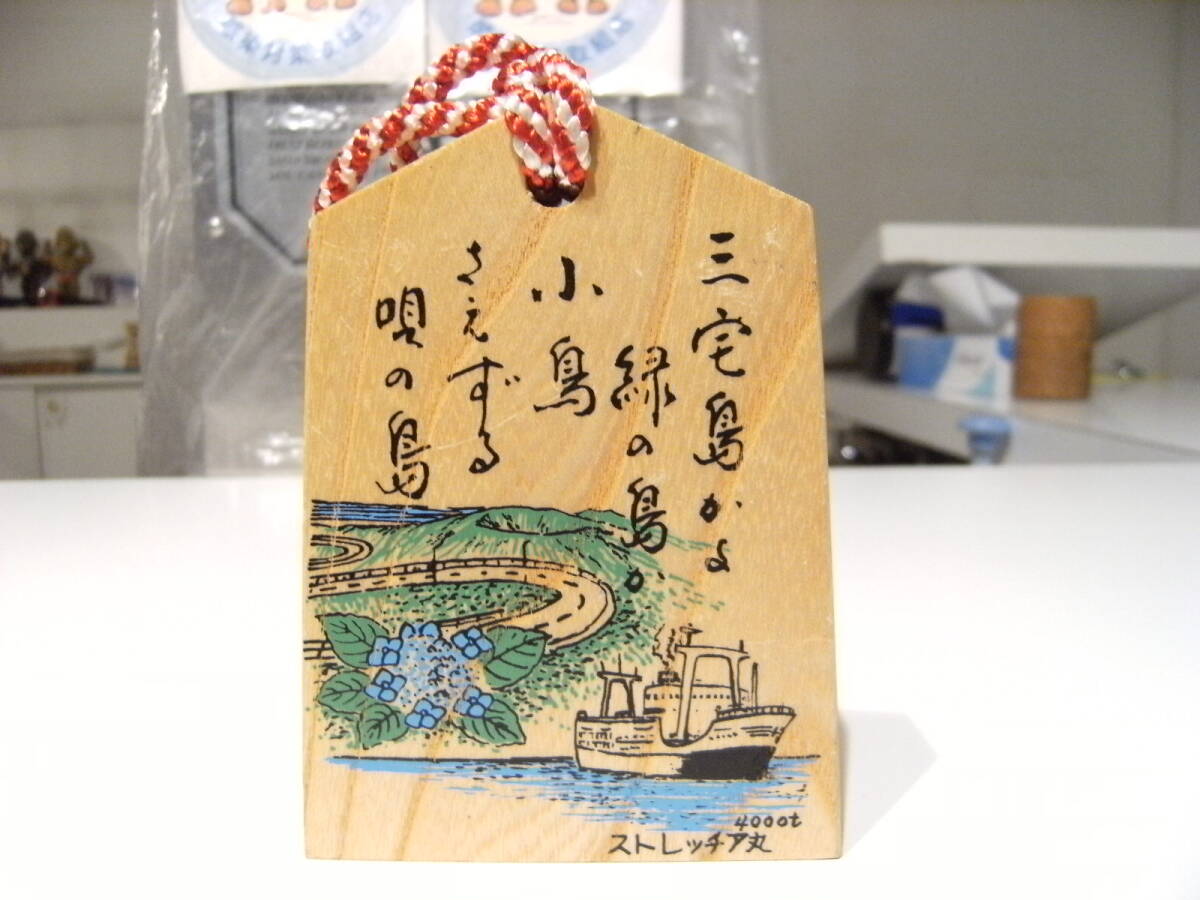 三宅島かよ
緑の島か
小鳥
さえずる
唄の島
4000t
ストレッチア丸